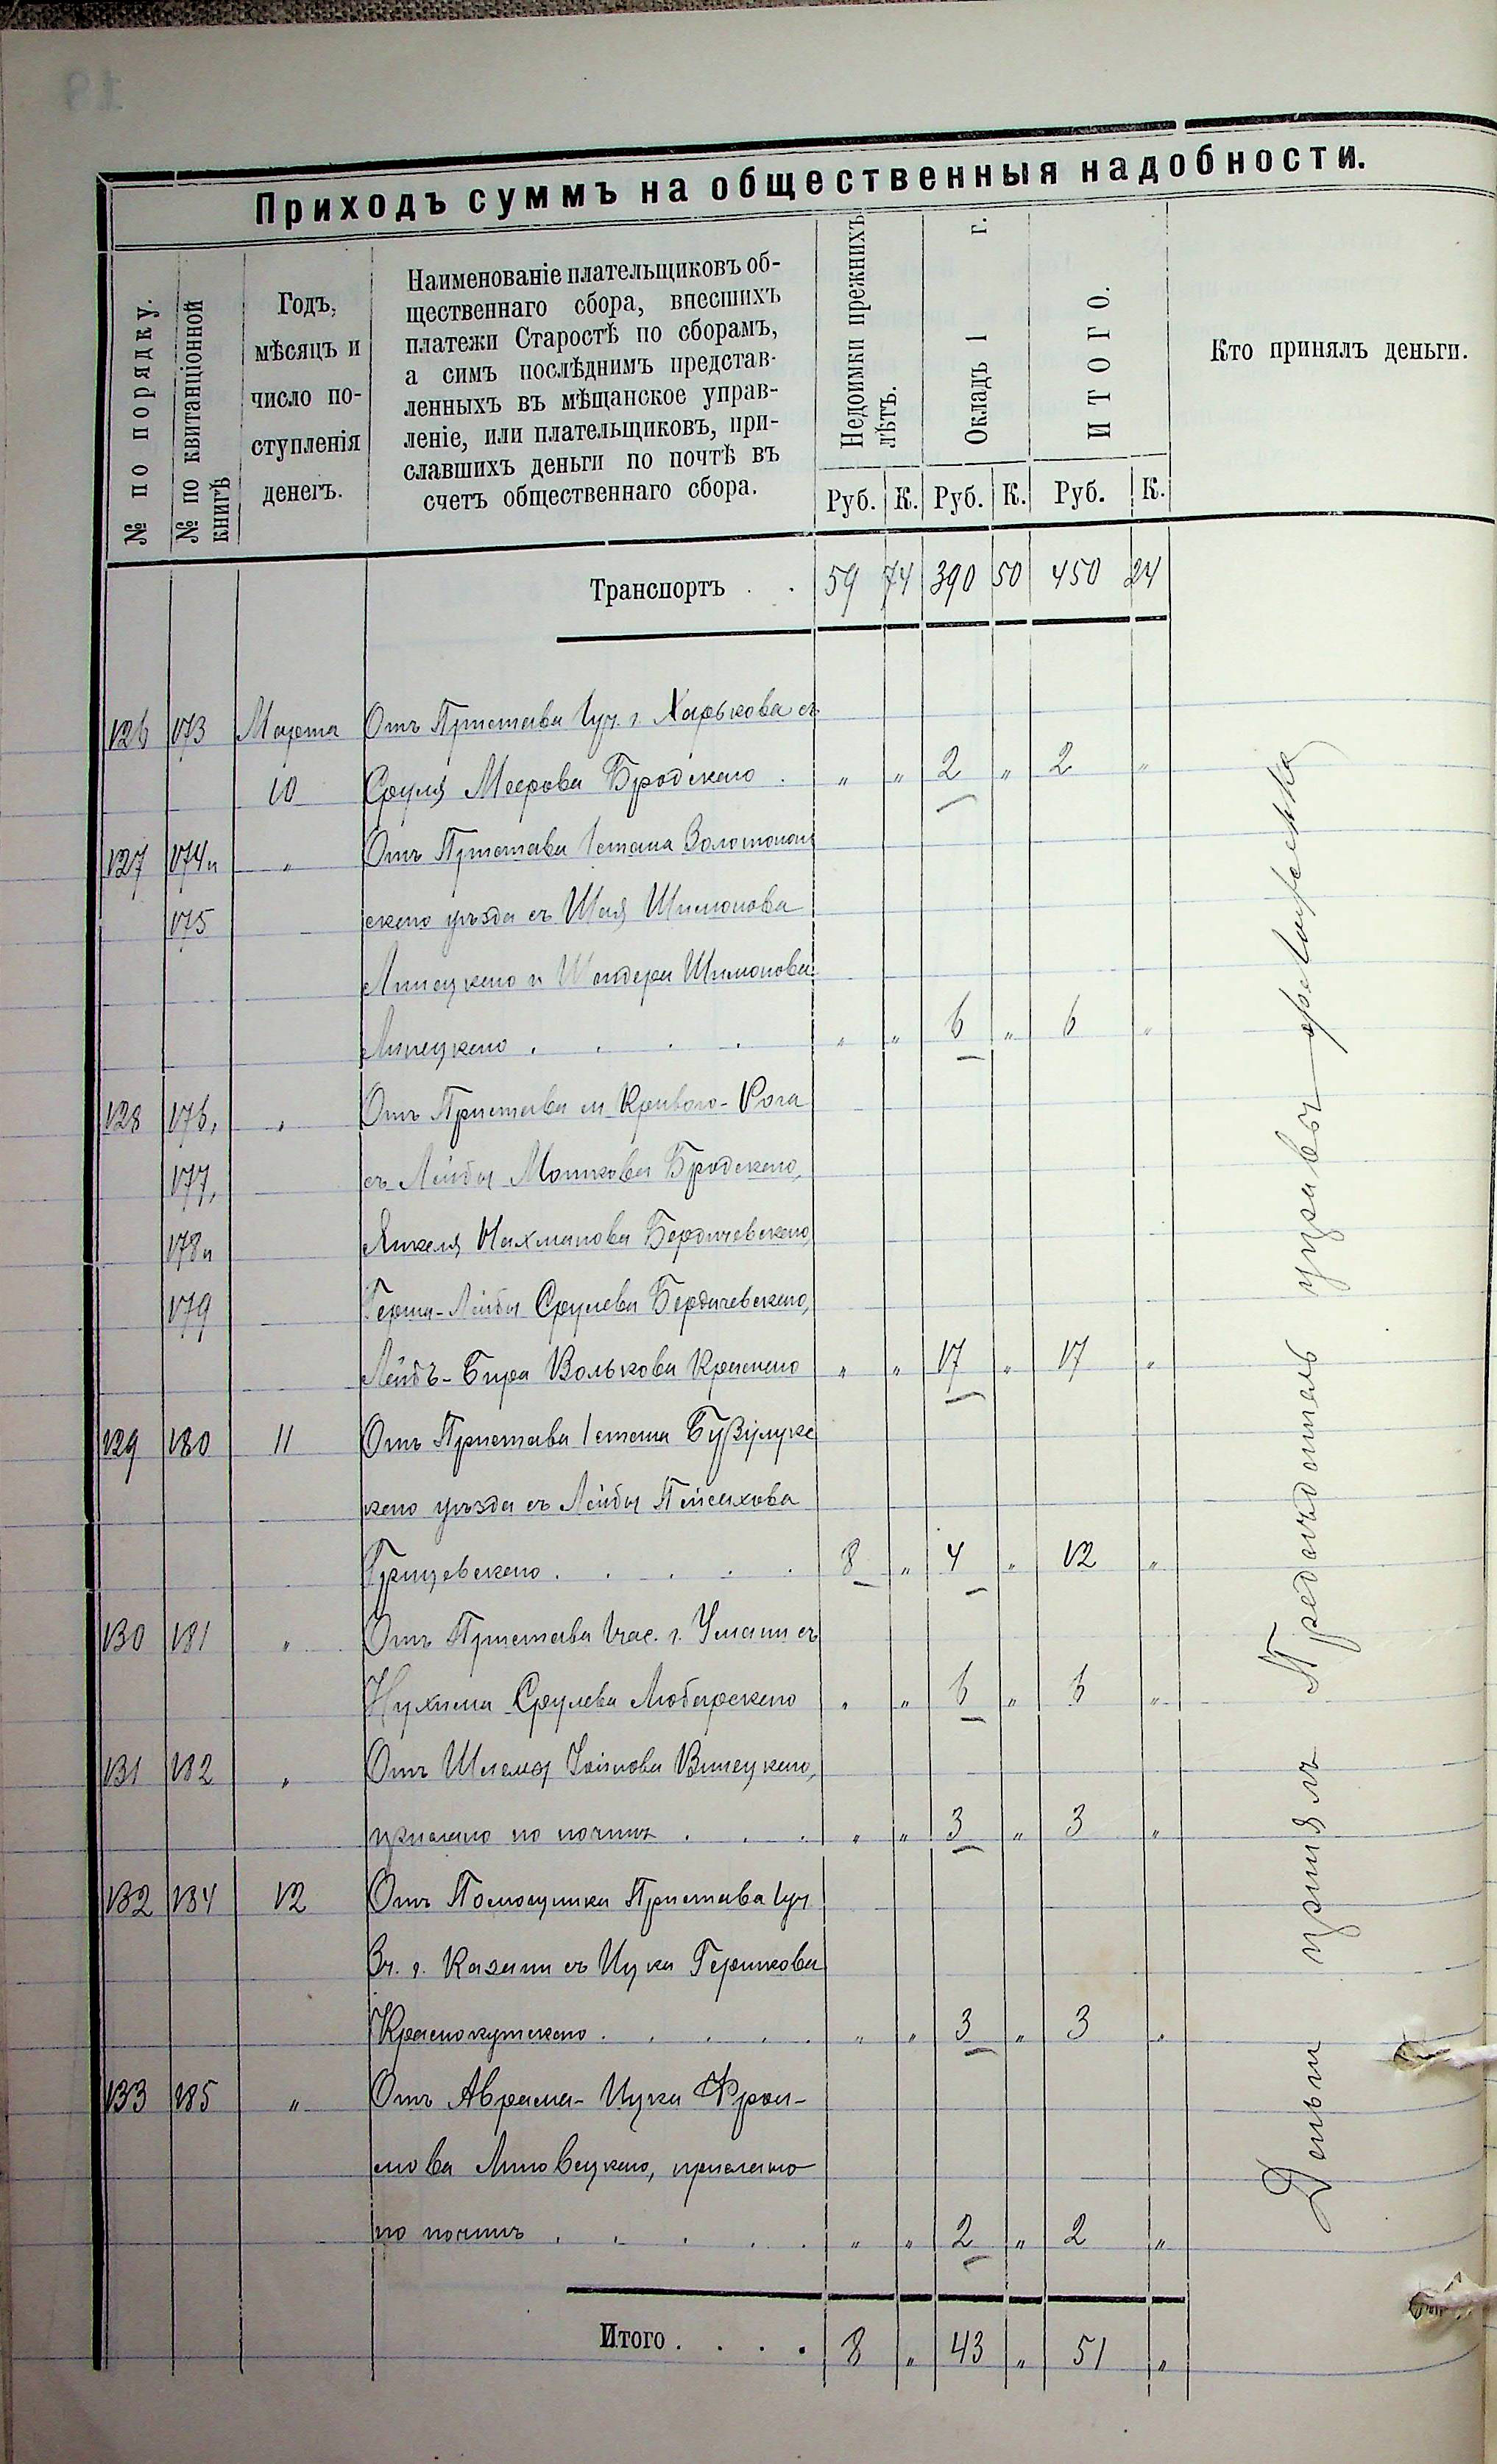 Приходъ суммъ на общественныя надобности.
№ по порядку.
№ по квитанціонной книгѣ
Годъ, мѣсяцъ и число поступленія денегъ.
Наименованіе плательщиковъ об-
щественнаго сбора, внесшихъ
платежи Старостѣ по сборамъ,
а симъ послѣднимъ представ-
ленныхъ въ мѣщанское управ-
леніе, или плательщиковъ, при-
славшихъ деньги по почтѣ въ
счетъ общественнаго сбора.
Недоимки прежнихъ лѣтъ.
Окладъ 1 г.
ИТОГО.
Кто принялъ деньги.
Руб. К. Руб. К. Руб. К.
Транспортъ . . 59 74 390 50 450 24
126 173 Марта Отъ Пристава 1 уч. г. Харькова съ
10 Сруля Меерова Бродскаго . " " 2 " 2 "
127 174 и " Отъ Пристава 1 стана Золотонош
175 скаго уѣзда съ Шая Шимонова
Липецкаго и Шендера Шимонова
Липецкаго . . . . " " 6 " 6 "
128 176, " Отъ Пристава м. Кривого-Рога
177, съ Лейбы Мошкова Бродскаго,
178 и Янкеля Нахманова Бердичевскаго,
179 Герша-Лейбы Срулева Бердичевскаго,
Лейбъ-Бера Волькова Краснаго " " 17 " 17 "
129 180 11 Отъ Пристава 1 стана Бузулукс
каго уѣзда съ Лейбы Пейсахова
Грищевскаго . . . . . 8 " 4 " 12 "
130 181 " Отъ Пристава 1 час. г. Умани съ
Нухима Срулева Любарскаго " " 6 " 6 "
131 182 " Отъ Шлемы Винецкаго,
прислано по почтѣ . . . " " 3 " 3 "
132 184 12 Отъ Помощника Пристава 1 уч
3 ч. г. Казани съ Ицка Гершкова
Краснокутскаго . . . . . " " 3 " 3 "
133 185 " Отъ Аврама-Ицка Фрои-
мова Липовецкаго, прислано
по почтѣ . . . . . " " 2 " 2 "
Итого . . . . 8 " 43 " 51 "
Деньги принялъ Предсѣдатель управы